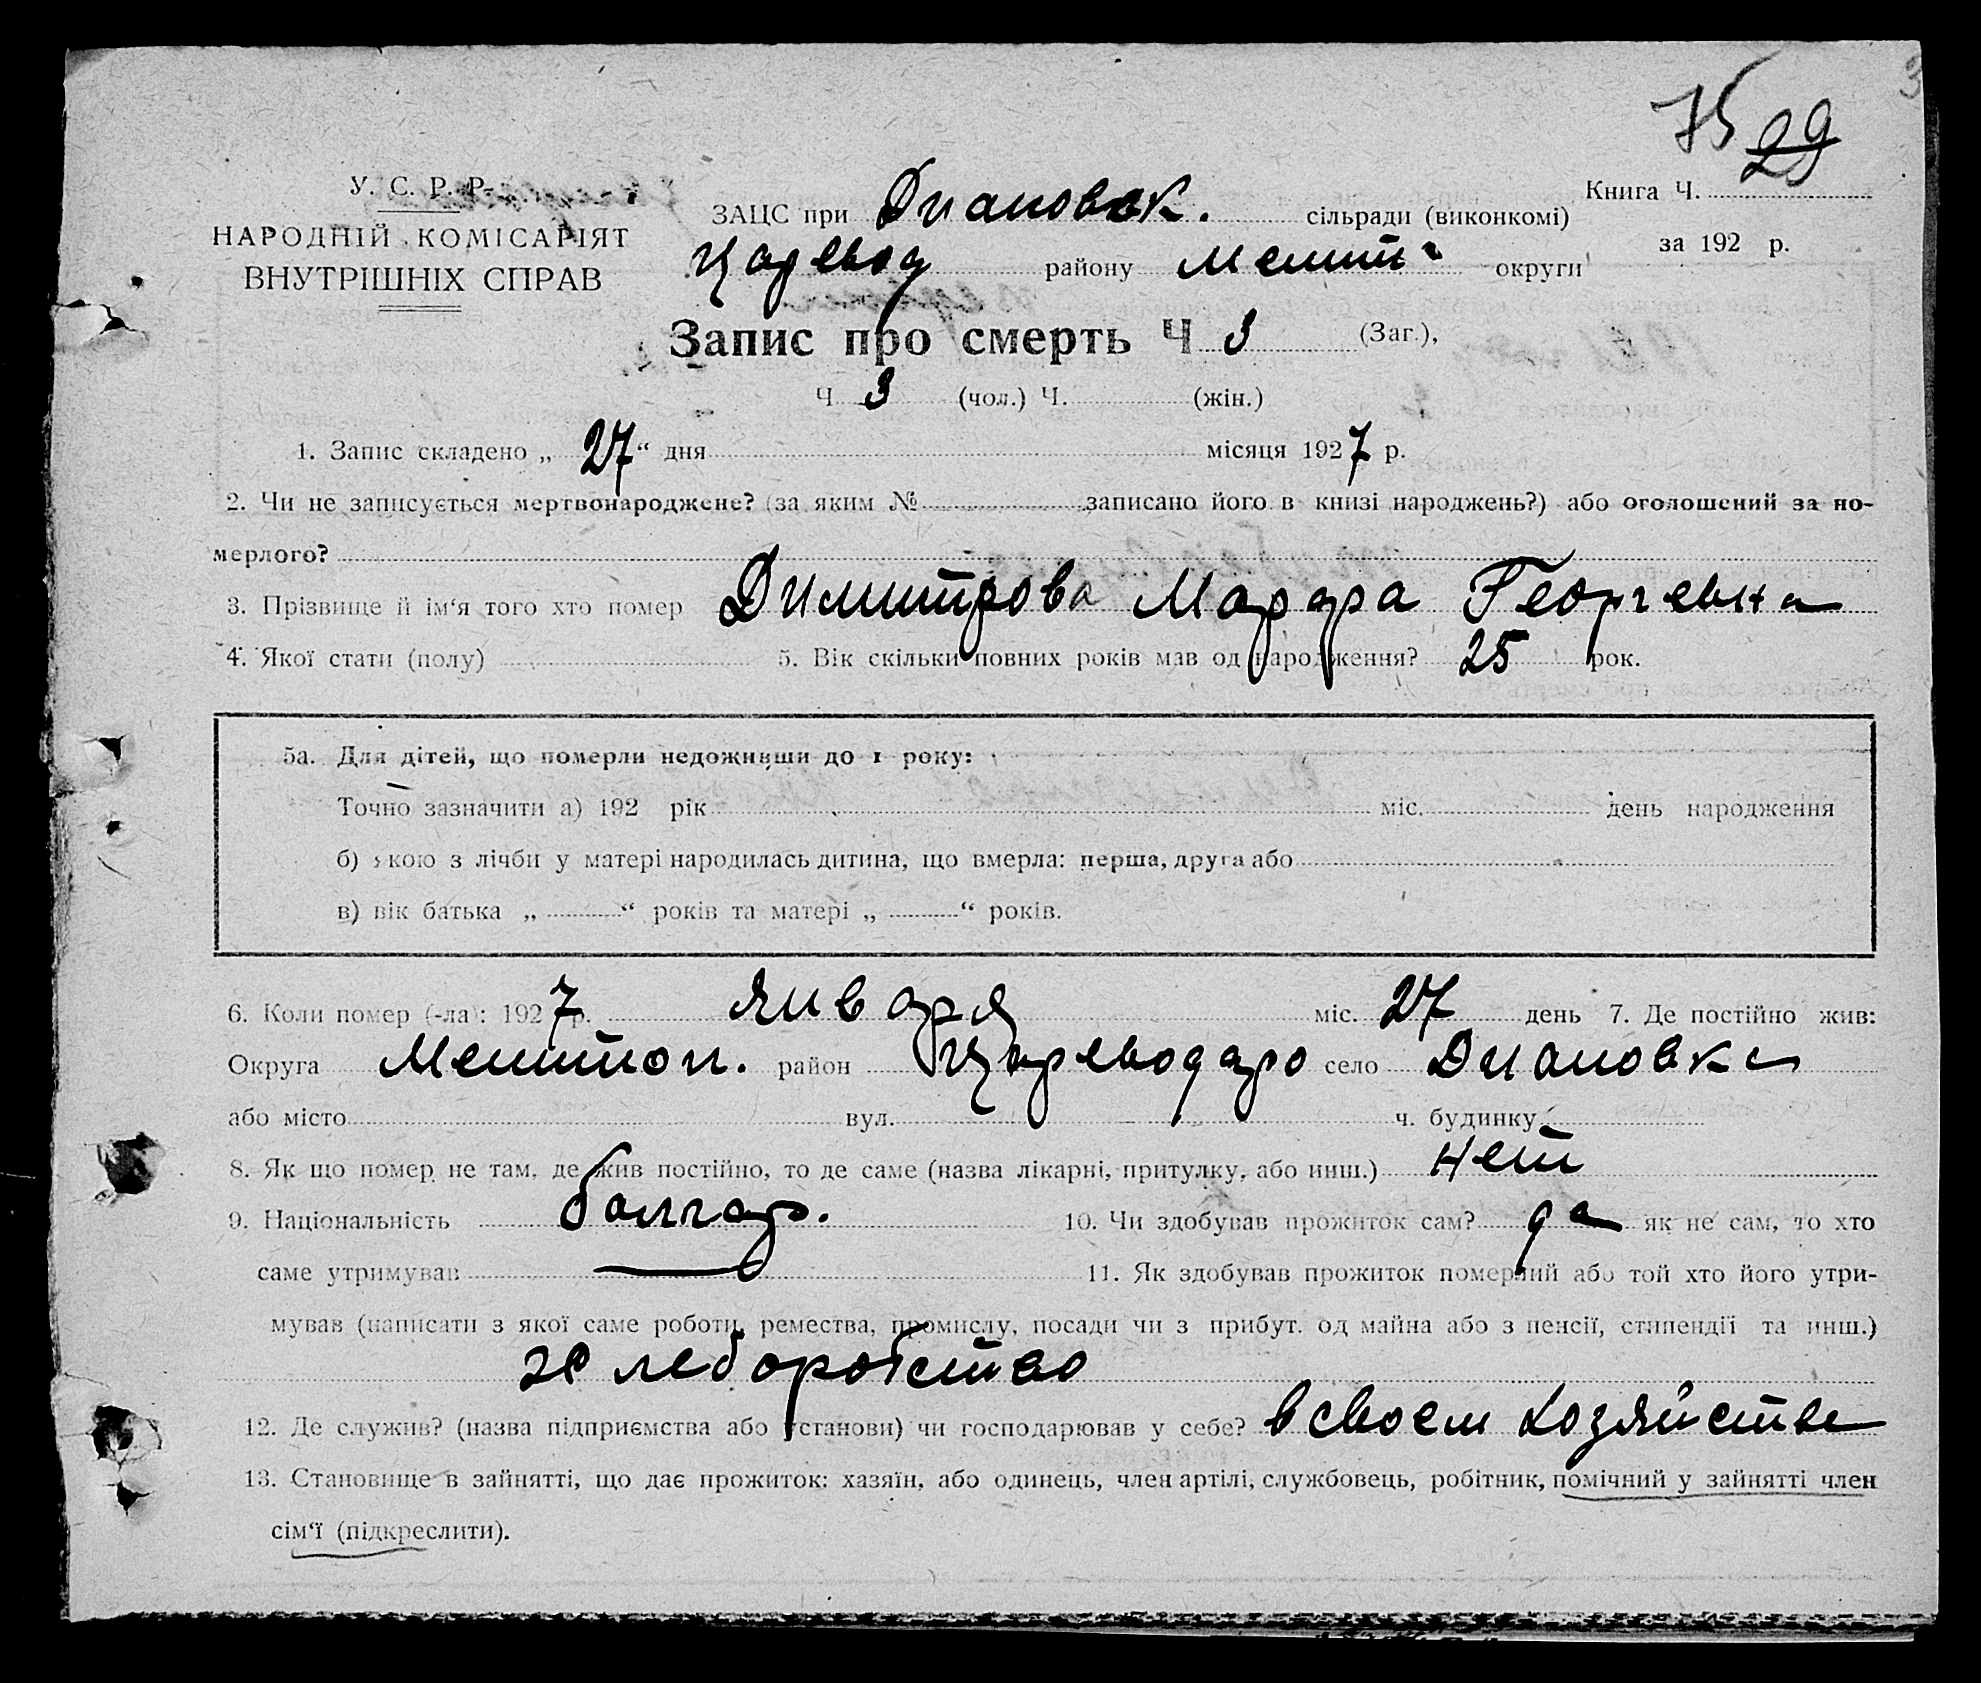 75 29
У. С. Р. Р.
НАРОДНІЙ КОМІСАРІЯТ
ВНУТРІШНІХ СПРАВ
Книга Ч.
за 192 р.
ЗАЦС при Диановск. сільради (виконкомі)
Царевод району Мелит округи
Запис про смерть Ч 3 (Заг.),
Ч 3 (чол.) Ч. (жін.)
1. Запис складено „ 27 “ дня місяця 1927 р.
2. Чи не записується мертвонароджене? (за яким № записано його в книзі народжень?) або оголошений за по-
мерлого?
3. Прізвище й ім‘я того хто помер Димитрова Георгевна
4. Якої стати (полу) 5. Вік скільки повних років мав од народження? 25 рок.
5а. Для дітей, що померли недоживши до 1 року:
Точно зазначити а) 192 рік міс. день народження
б) якою з лічби у матері народилась дитина, що вмерла: перша, друга або
в) вік батька „ “ років та матері „ “ років.
6. Коли помер (-ла): 1927 р. января міс. 27 день 7. Де постійно жив:
Округа Мелитоп. район Цареводаро село Диановка
або місто вул. ч. будинку
8. Як що помер не там, де жив постійно, то де саме (назва лікарні, притулку, або инш.) нет
9. Національність болгар. 10. Чи здобував прожиток сам? да як не сам, то хто
саме утримував 11. Як здобував прожиток померлий або той хто його утри-
мував (написати з якої саме роботи, ремества, промислу, посади чи з прибут. од майна або з пенсії, стипендії та инш.)
хлеборобство
12. Де служив? (назва підприємства або установи) чи господарював у себе? в своем хозяйстве
13. Становище в зайнятті, що дає прожиток: хазяїн, або одинець, член артілі, службовець, робітник, помічний у зайнятті член
сім‘ї (підкреслити).